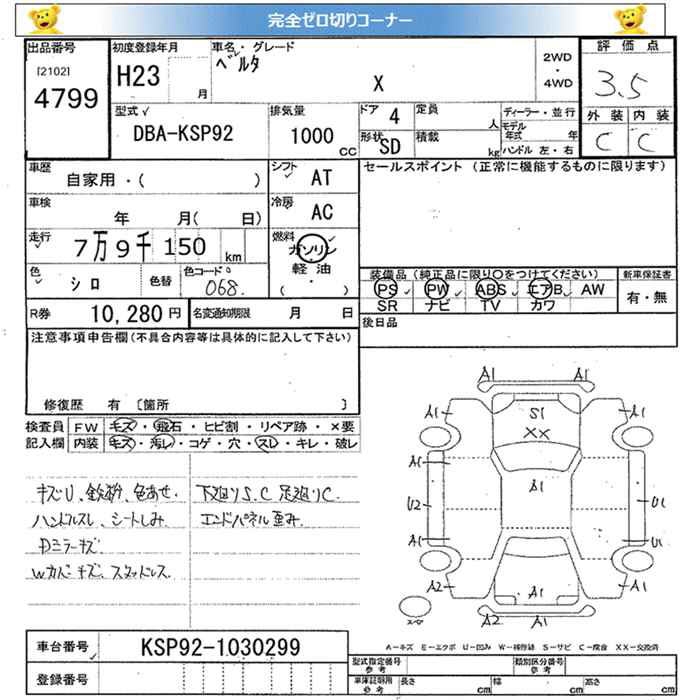 完全ゼロ切りコーナー
出品番号 初度登録年月 車名・グレード 評価点
[2102] ベルタ 2WD
4799 H23 月 X ・ 4WD 3.5
型式 排気量 ドア 4 定員 人 ディーラー・並行 外装 内装
DBA-KSP92 1000 cc 形状 SD 積載 kg モデル年式 年 C C
ハンドル 左・右
車歴 シフト セールスポイント (正常に機能するものに限ります)
自家用・( ) AT
車検 冷房
年 月( 日) AC
走行 燃料
7万9千150 km ガソリン
軽油
色 シロ 色替 色コード 068 ( ・ ) 装備品 (純正品に限り○をつけてください) 新車保証書
PS PW ABS エアB AW 有・無
SR ナビ TV カワ
R券 10,280円 名変通知期限 月 日 後日品
注意事項申告欄(不具合内容等は具体的に記入して下さい)
修復歴 有 〔箇所 〕
検査員 FW キズ・飛石・ヒビ割・リペア跡・×要
記入欄 内装 キズ・汚レ・コゲ・穴・スレ・キレ・破レ
キズU、鉄粉、色あせ、 下廻りS.C 足廻りC.
ハンドルスレ、シートしみ. エンドパネル歪み.
Dミラーキズ.
Wカバーキズ、スタッドレス.
A1 A1
A1 S1 A1
XX
A1 A1
U2 U1
A1 U1
A2 A1 A1
A2 A1
スペア
A-キズ E-エクボ U-凹み W-補修跡 S-サビ C-腐食 XX-交換済
車台番号 KSP92-1030299
登録番号
型式指定番号 参考 類別区分番号 参考
車庫証明用 参考 長さ cm 幅 cm 高さ cm